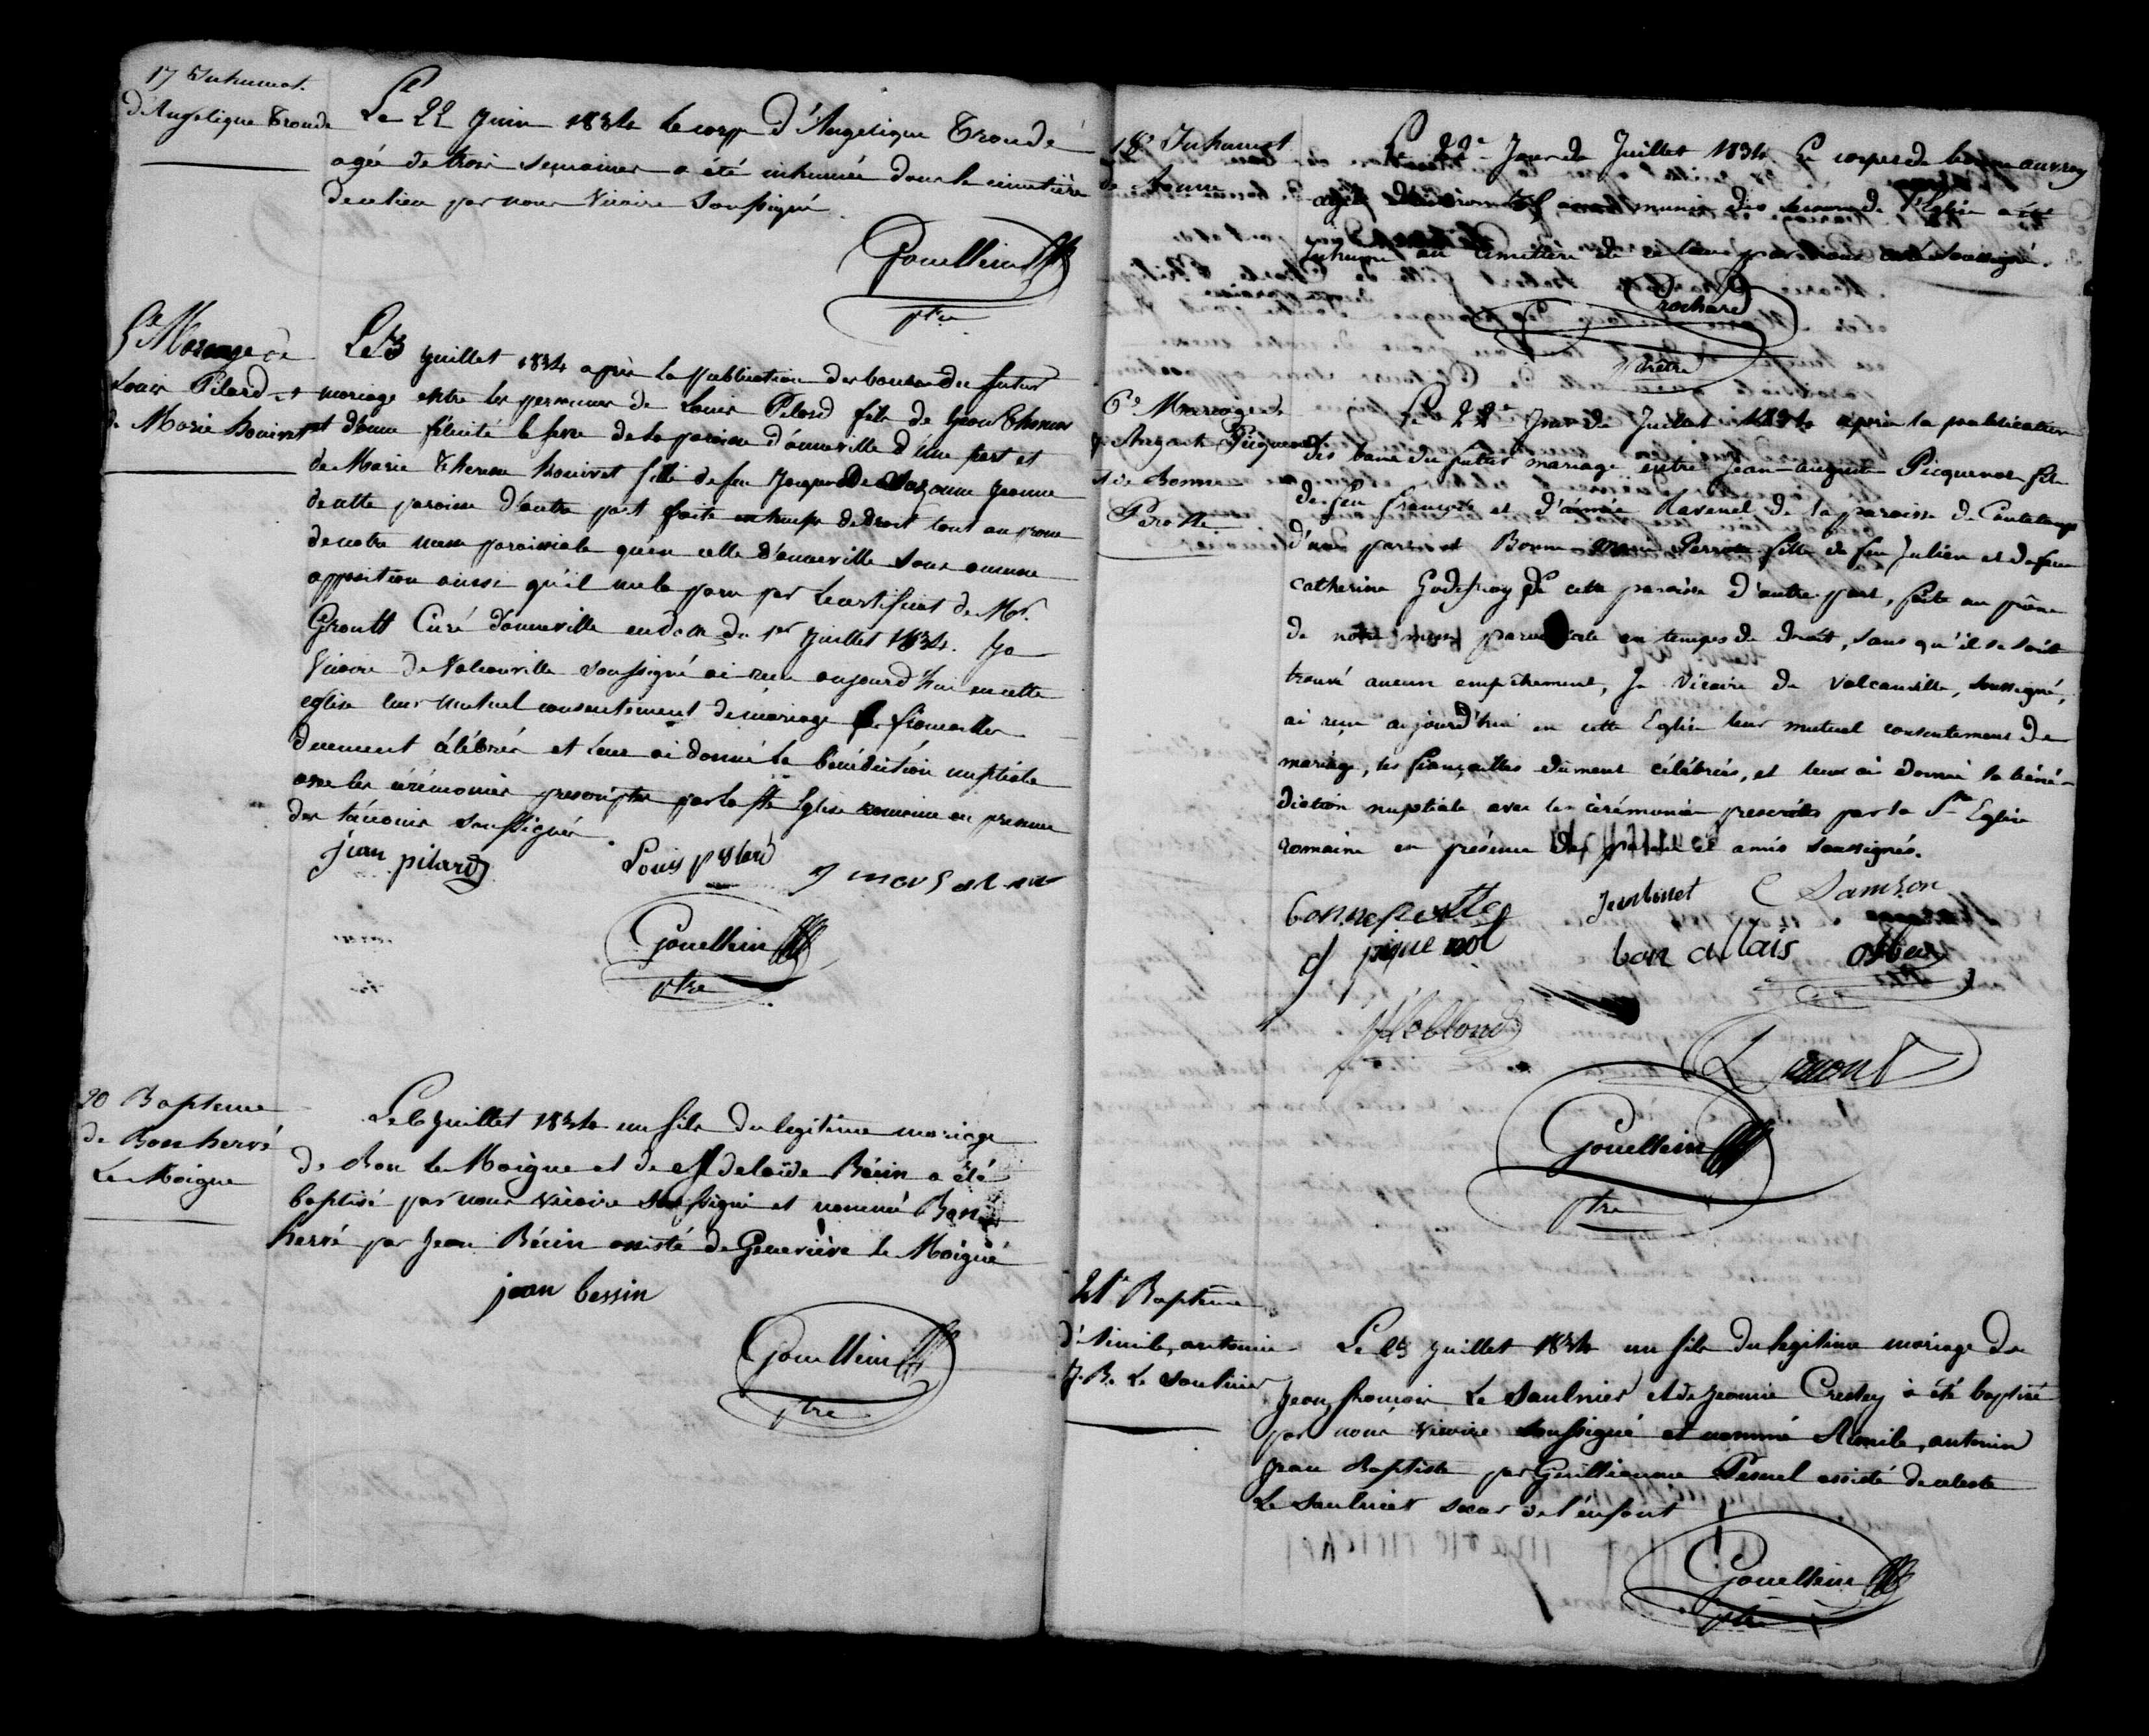 17 Inhumat.
d'Angelique Troude
Le 22 Juin 1834 le corp d'Angelique Troudé
agée de trois semaines a été inhumée dans le cimetière
de ce lieu par nous Vicaire soussigné.
Gouellain
ptre
5e Mariage de
Louis Pilard et
de Marie Bouivet
Le 3 juillet 1834 après la publication des bans du futur
mariage entre les personnes de Louis Pilard fils de Jean Thomas
et d'anne félicité le fevre de la paroisse d'anneville d'une part et
de Marie Therese Bouivet fille de feu Jacques De anne Jeanne
de cette paroisse d'autre part faite en temps de droit tant au prone
de notre messe paroissiale qu'en celle d'anneville sans aucune
opposition aüssi qu'il me la paru par le certificat de Mr.
Groult Curé d'anneville en date du 1er Juillet 1834. Je
Vicaire de Valcanville soussigné ai reçu aujourd'hui en cette
eglise leur mutuel consentement de mariage les fiançailles
duement célébrés et leur ai donné la bénédiction nuptiale
avec les cérémonies prescriptes par la Ste Eglise romaine en presence
des témoins soussignés.
jean pilard
Louis pilard
Gouellain
ptre
20 Bapteme
de Bon hervé
Le Moigne
Le 6 juillet 1834 un fils du legitime mariage
de Bon Le Moigne et de Adelaïde Bécin a été
baptisé par nous vicaire soussigné et nommé Bon
hervé par Jean Bécin assisté de Geneviève le Moigne
jean bessin
Gouellain
ptre
18e Inhumat
de Bonne
Le 22e Jour de Juillet 1834 Le corps de bonne auvray
agée de munie des secours de l'Eglise a été
Inhumé au Cimetière de ce lieu par nous curé soussigné.
Trohard
prêtre
6e Mariage de
J. August. Picquenot
et de Bonne
Perotte
Le 22e Jour de Juillet 1834 après la publication
des bans du futur mariage entre Jean-augustin Picquenot fils
de feu françois et d'aimée Ravenel de la paroisse de Canteloup
d'une part et Bonne Marie Perrotte fille de feu Julien et de feue
catherine Godefroy de cette paroisse d'autre part, faite au prône
de notre messe paroissiale en temps de droit, sans qu'il se soit
trouvé aucun empêchement, Je Vicaire de Valcanville, soussigné,
ai reçu aujourd'hui en cette Eglise leur mutuel consentement de
mariage, les fiançailles dûment célébrées, et leur ai donné la béné-
diction nuptiale avec les cérémonies prescrites par la Ste Eglise
romaine en présence des parents et amis soussignés.
bonne perotte
Jean C Samson
J pique not
bon allais
J Leblond
Dumont
Gouellain
ptre
21e Bapteme
d'Aimile, antonin
J. B. Le Saulnier
Le 23 juillet 1834 un fils du legitime mariage de
Jean françois Le Saulnier et de Jeanne Crestey a été baptisé
par nous vicaire soussigné et nommé Aimile, antonin
Jean Baptiste par Guillieaume Pesnel assisté de celeste
Le Saulnier sœur de l'enfant
Gouellain
ptre